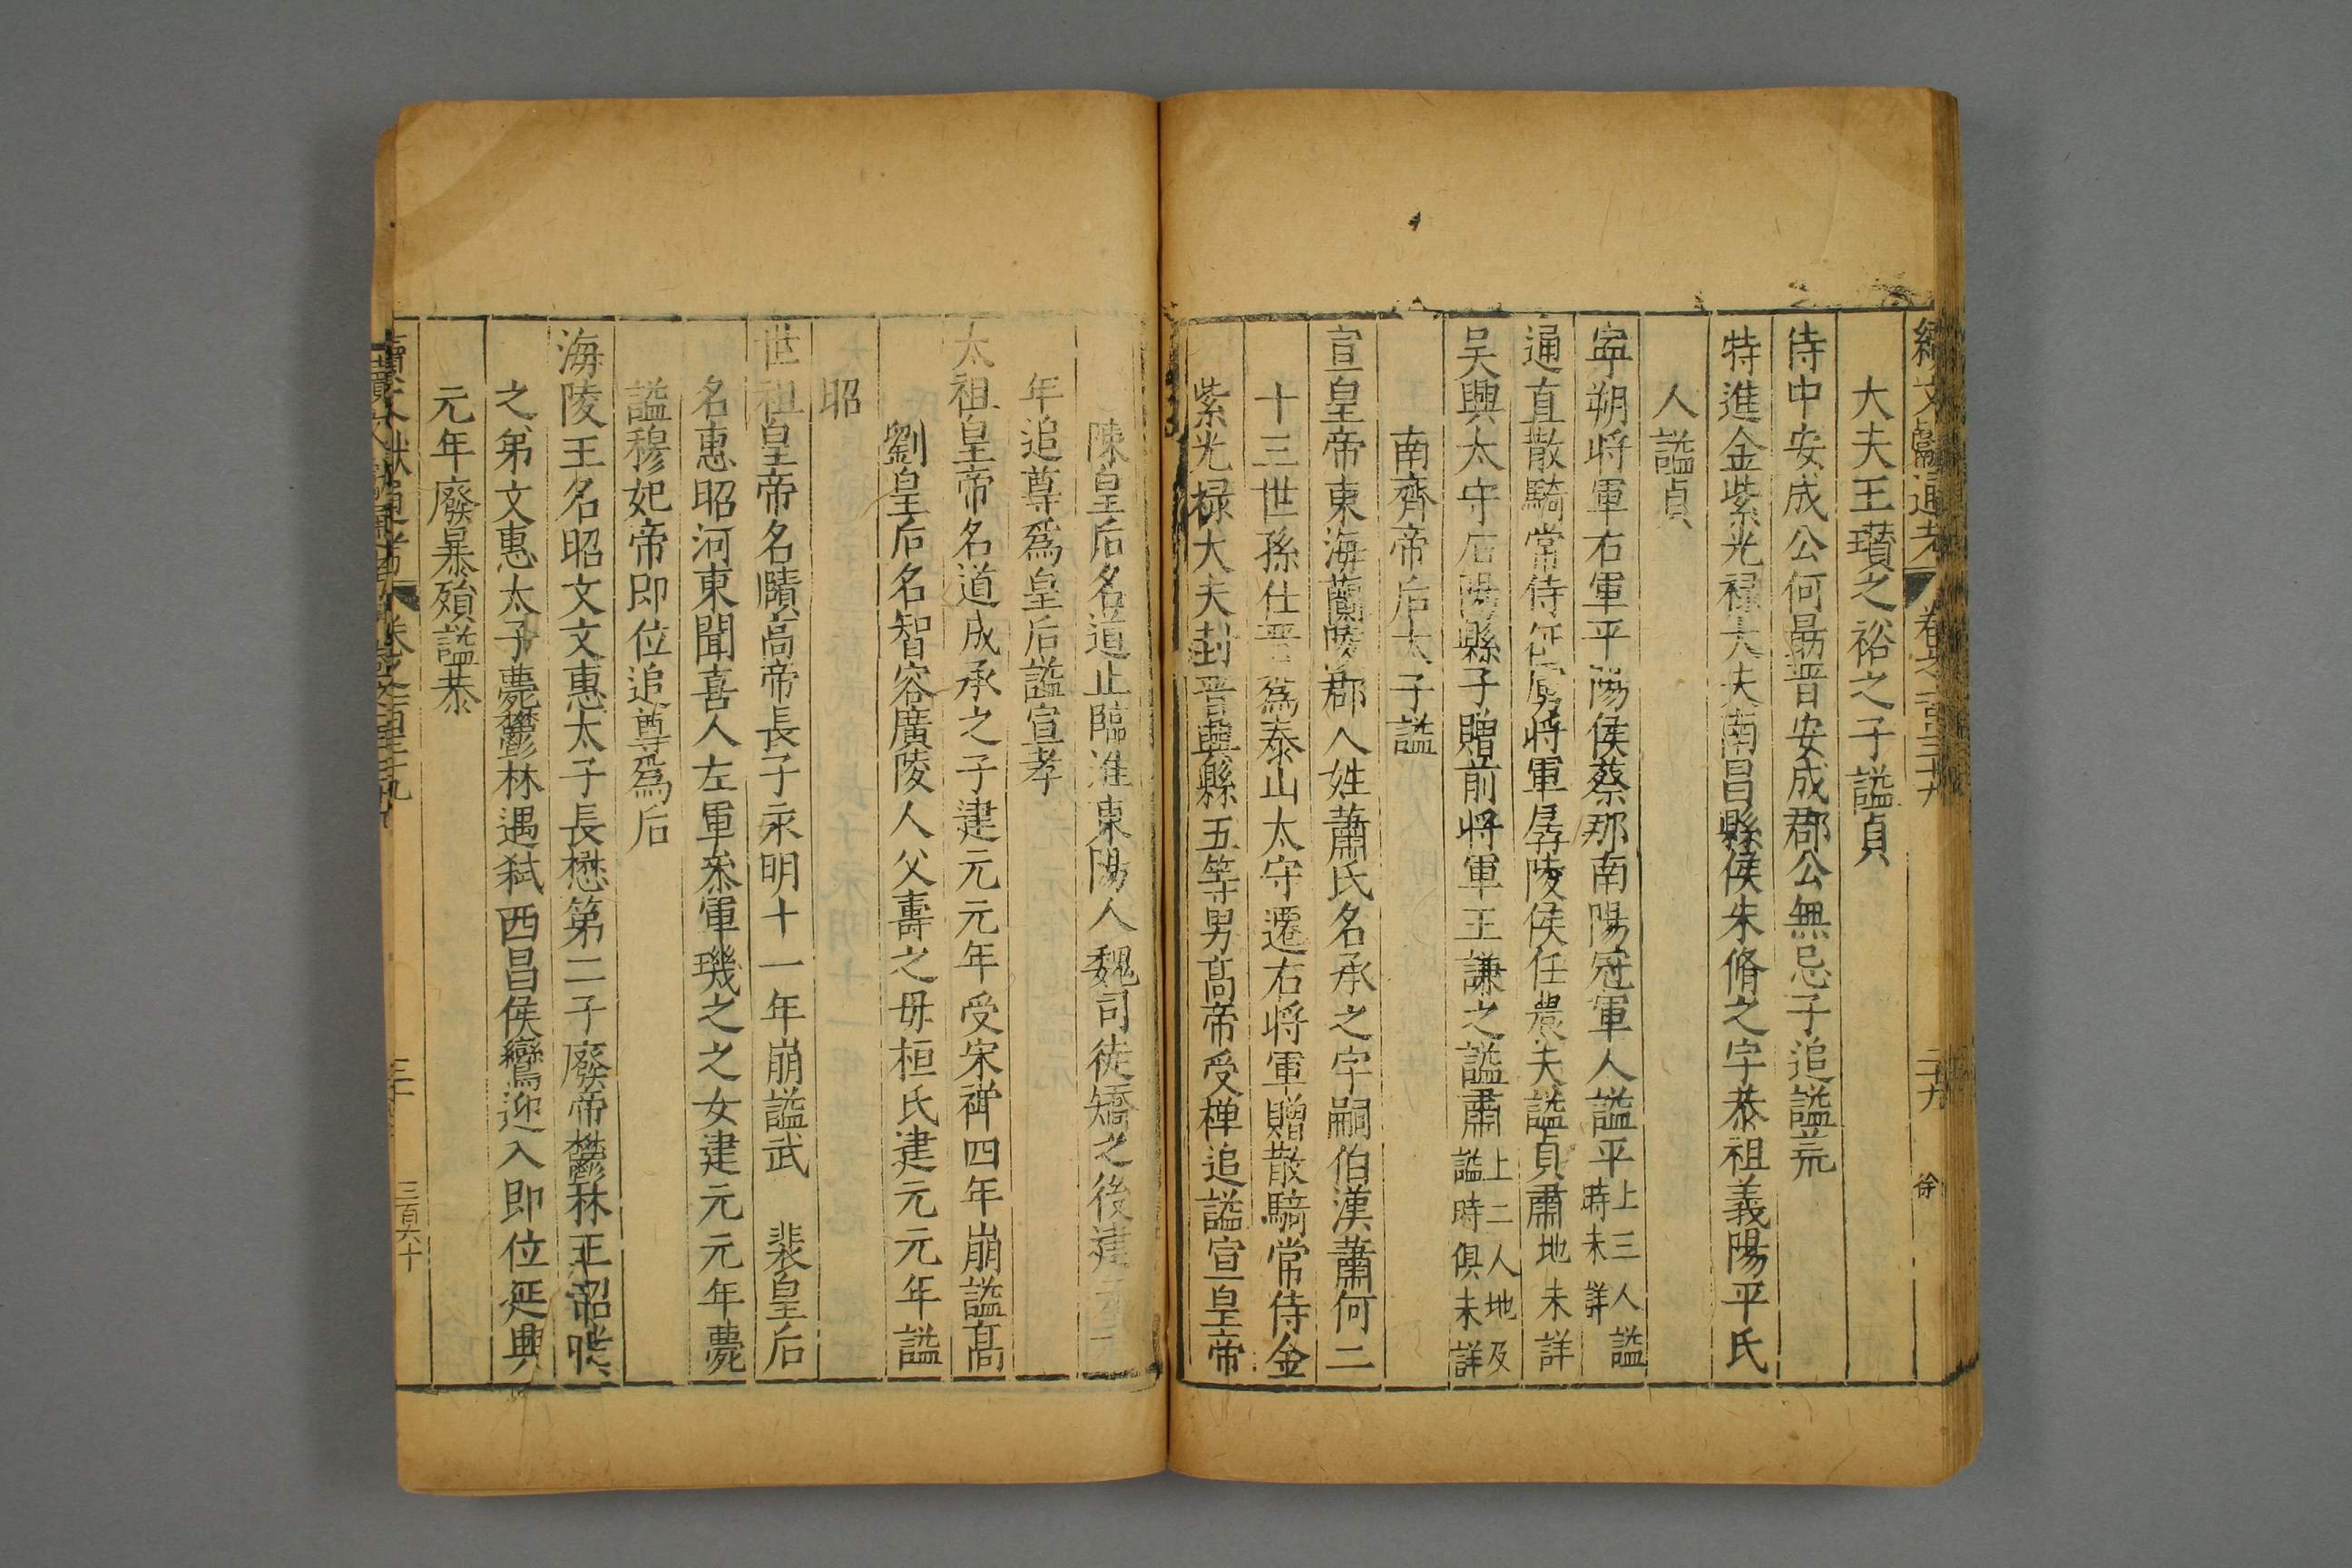 續文獻通考 卷之一百三十九 二十九 徐
大夫王瓚之裕之子謚貞
侍中安成公何勗晋安成郡公無忌子追謚荒
特進金紫光禄大夫南昌縣侯朱脩之字恭祖義陽平氏
人謚貞
寧朔將軍右軍平陽侯蔡那南陽冠軍人謚平上三人謚時未詳
通直散騎常侍征虜將軍孱陵侯任農夫謚貞肅地未詳
吴興太守石陽縣子贈前將軍王謙之謚肅上二人地及謚時俱未詳
南齊帝后太子謚
宣皇帝東海蘭陵郡人姓蕭氏名承之字嗣伯漢蕭何二
十三世孫仕晋爲泰山太守遷右將軍贈散騎常侍金
紫光禄大夫封晋興縣五等男髙帝受禅追謚宣皇帝
陳皇后名道止臨淮東陽人魏司徒矯之後建元二
年追尊爲皇后謚宣孝
太祖皇帝名道成承之子建元元年受宋禅四年崩謚髙
劉皇后名智容廣陵人父壽之毋桓氏建元元年謚
昭
世祖皇帝名賾高帝長子永明十一年崩謚武 裴皇后
名惠昭河東聞喜人左軍叅軍璣之之女建元元年薨
謚穆妃帝即位追尊爲后
海陵王名昭文文惠太子長懋第二子廢帝鬱林王昭業
之弟文惠太子薨鬱林遇弑西昌侯鸞迎入即位延興
元年廢暴殞謚恭
續文獻通考 卷之一百三十九 三十 三百六十